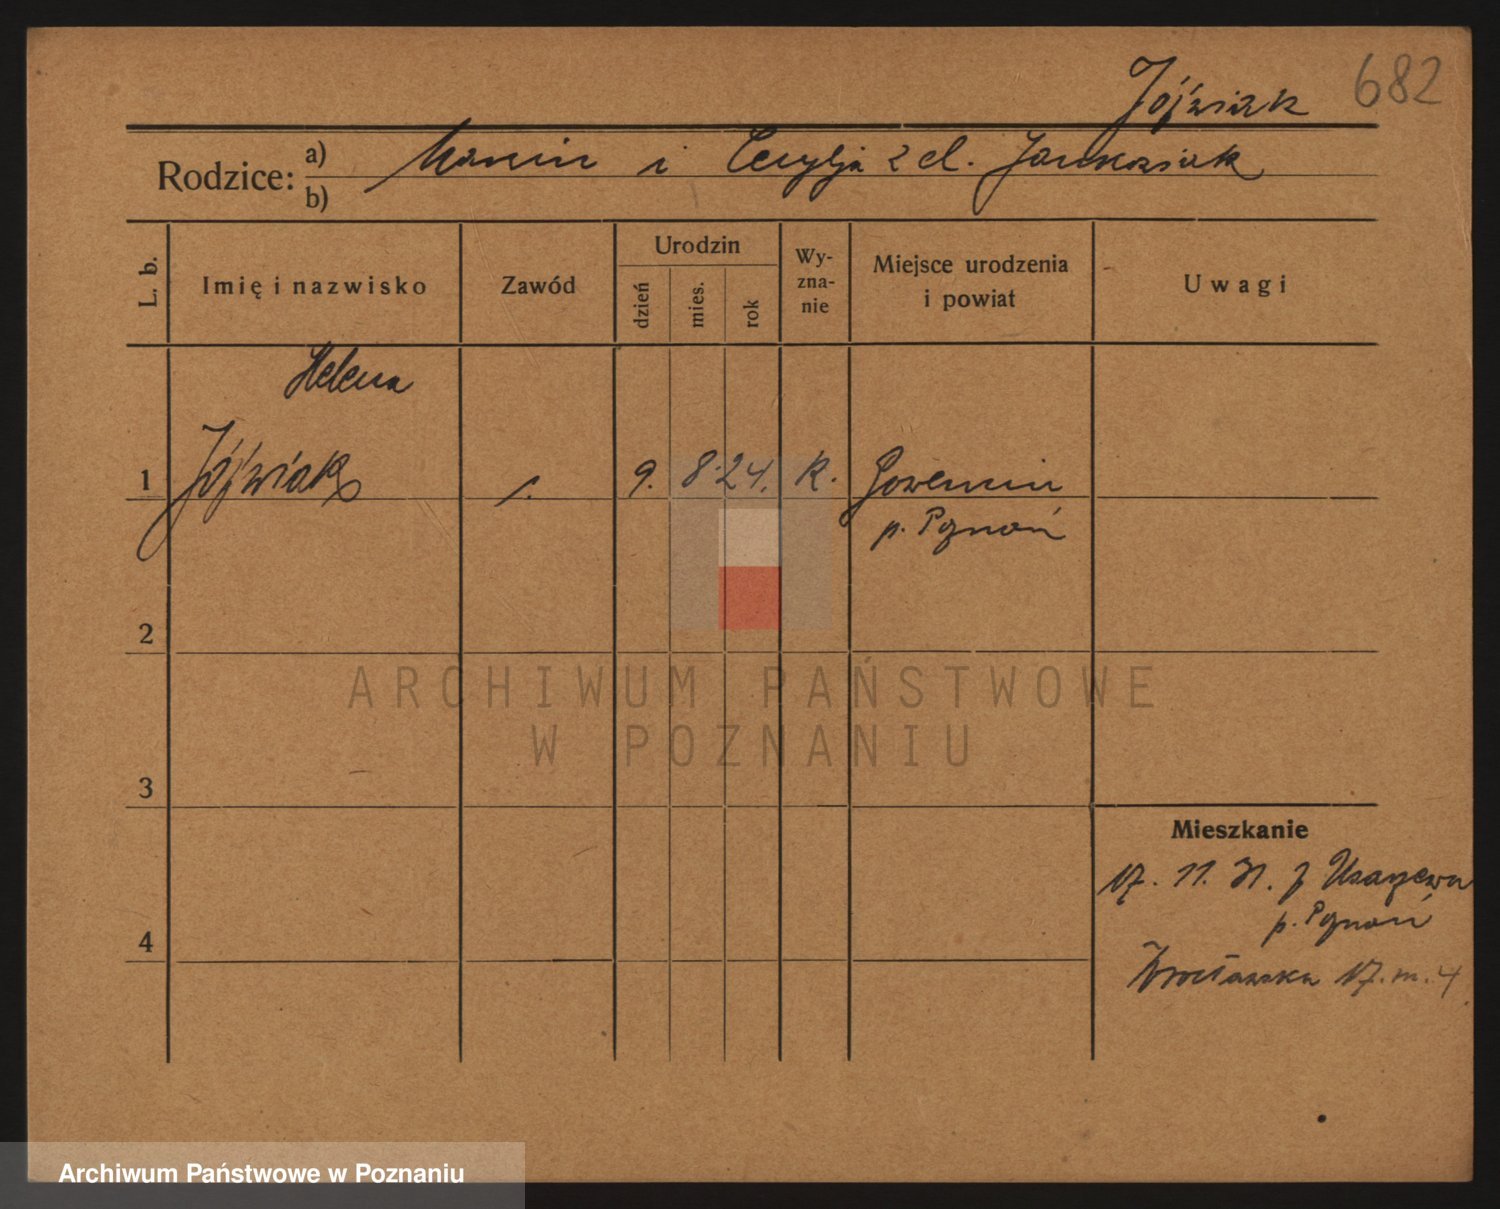 682
Jóźwiak
Rodzice: a) Marcin i Cecylja z d. Jankowiak
b)
L. b.
Imię i nazwisko
Zawód
Urodzin
dzień
mies.
rok
Wy-
zna-
nie
Miejsce urodzenia
i powiat
Uwagi
Helena
1 Jóźwiak /. 9. 8. 24. k.
p. Poznań
2
3
4
Mieszkanie
17. 11. 31. z
p. Poznań
Wrocławska 17. m. 4
ARCHIWUM PAŃSTWOWE
W POZNANIU
Archiwum Państwowe w Poznaniu